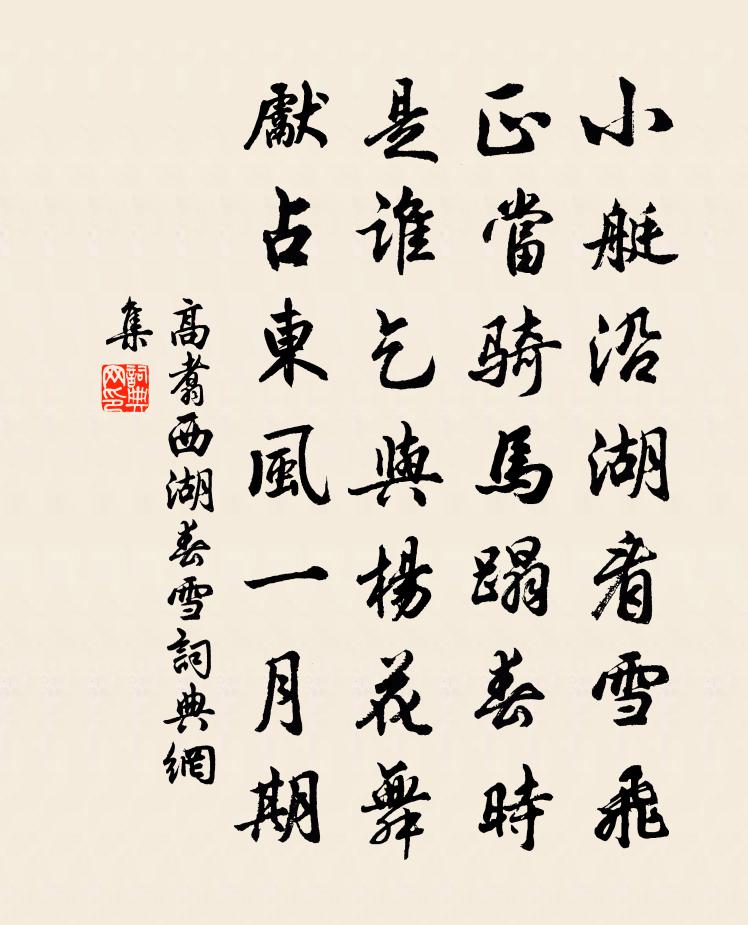 小艇沿湖看雪飛
正當騎馬蹋春時
是誰乞與楊花舞
獻占東風一月期
高翥西湖春雪詞典網
集
詞典
网印